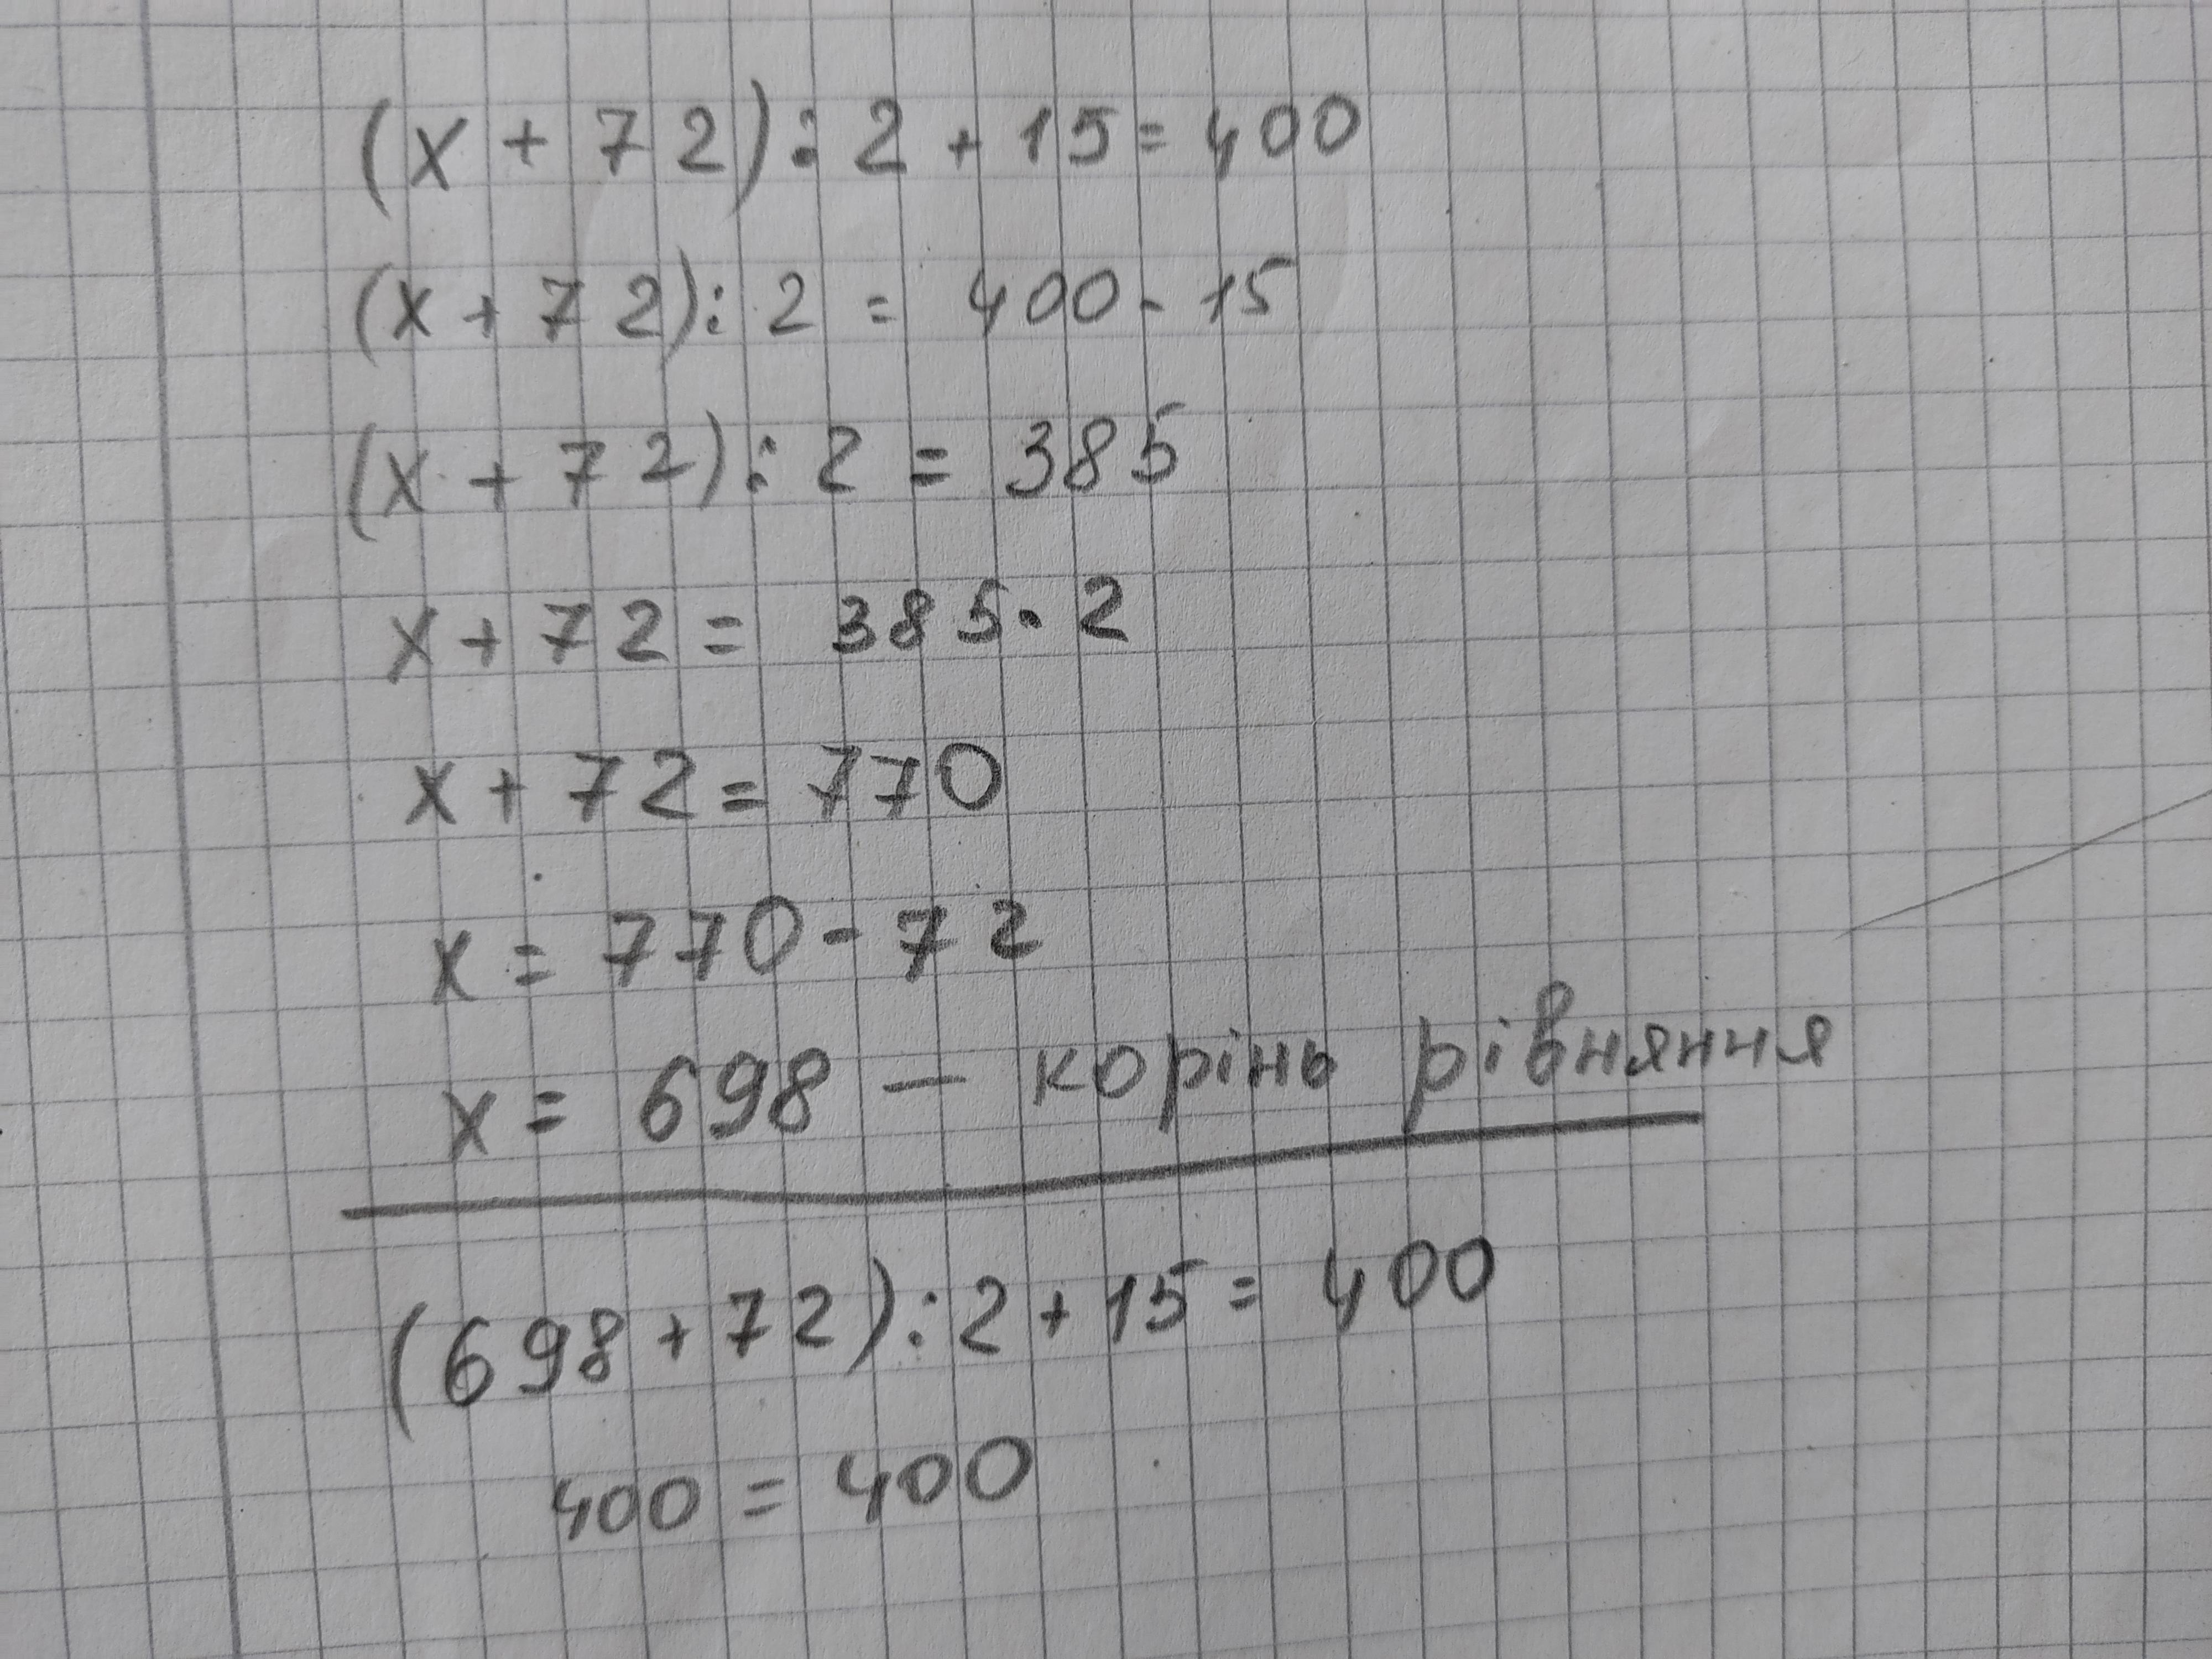 (x + 72) : 2 + 15 = 400
(x + 72) : 2 = 400 - 15
(x + 72) : 2 = 385
x + 72 = 385 · 2
x + 72 = 770
x = 770 - 72
x = 698 — корінь рівняння
(698 + 72) : 2 + 15 = 400
400 = 400